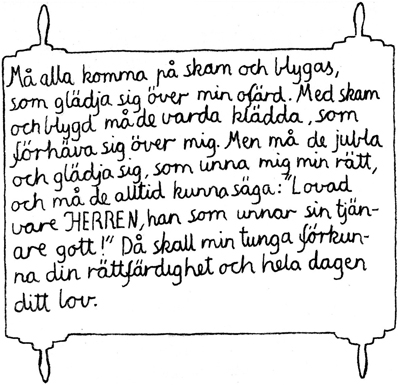 Må alla komma på skam och blygas,
som glädja sig över min ofärd. Med skam
och blygd må de varda klädda, som
förhäva sig över mig. Men må de jubla
och glädja sig, som unna mig min rätt,
och må de alltid kunna säga: "Lovad
vare HERREN, han som unnar sin tjän-
are gott!" Då skall min tunga förkun-
na din rättfärdighet och hela dagen
ditt lov.